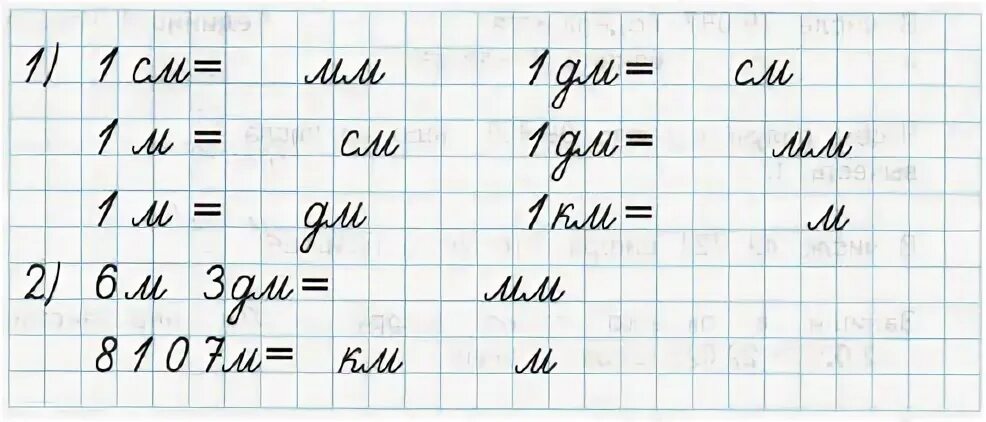 1) 1 см = мм 1 дм = см
1 м = см 1 дм = мм
1 м = дм 1 км = м
2) 6 м 3 дм = мм
8107 м = км м